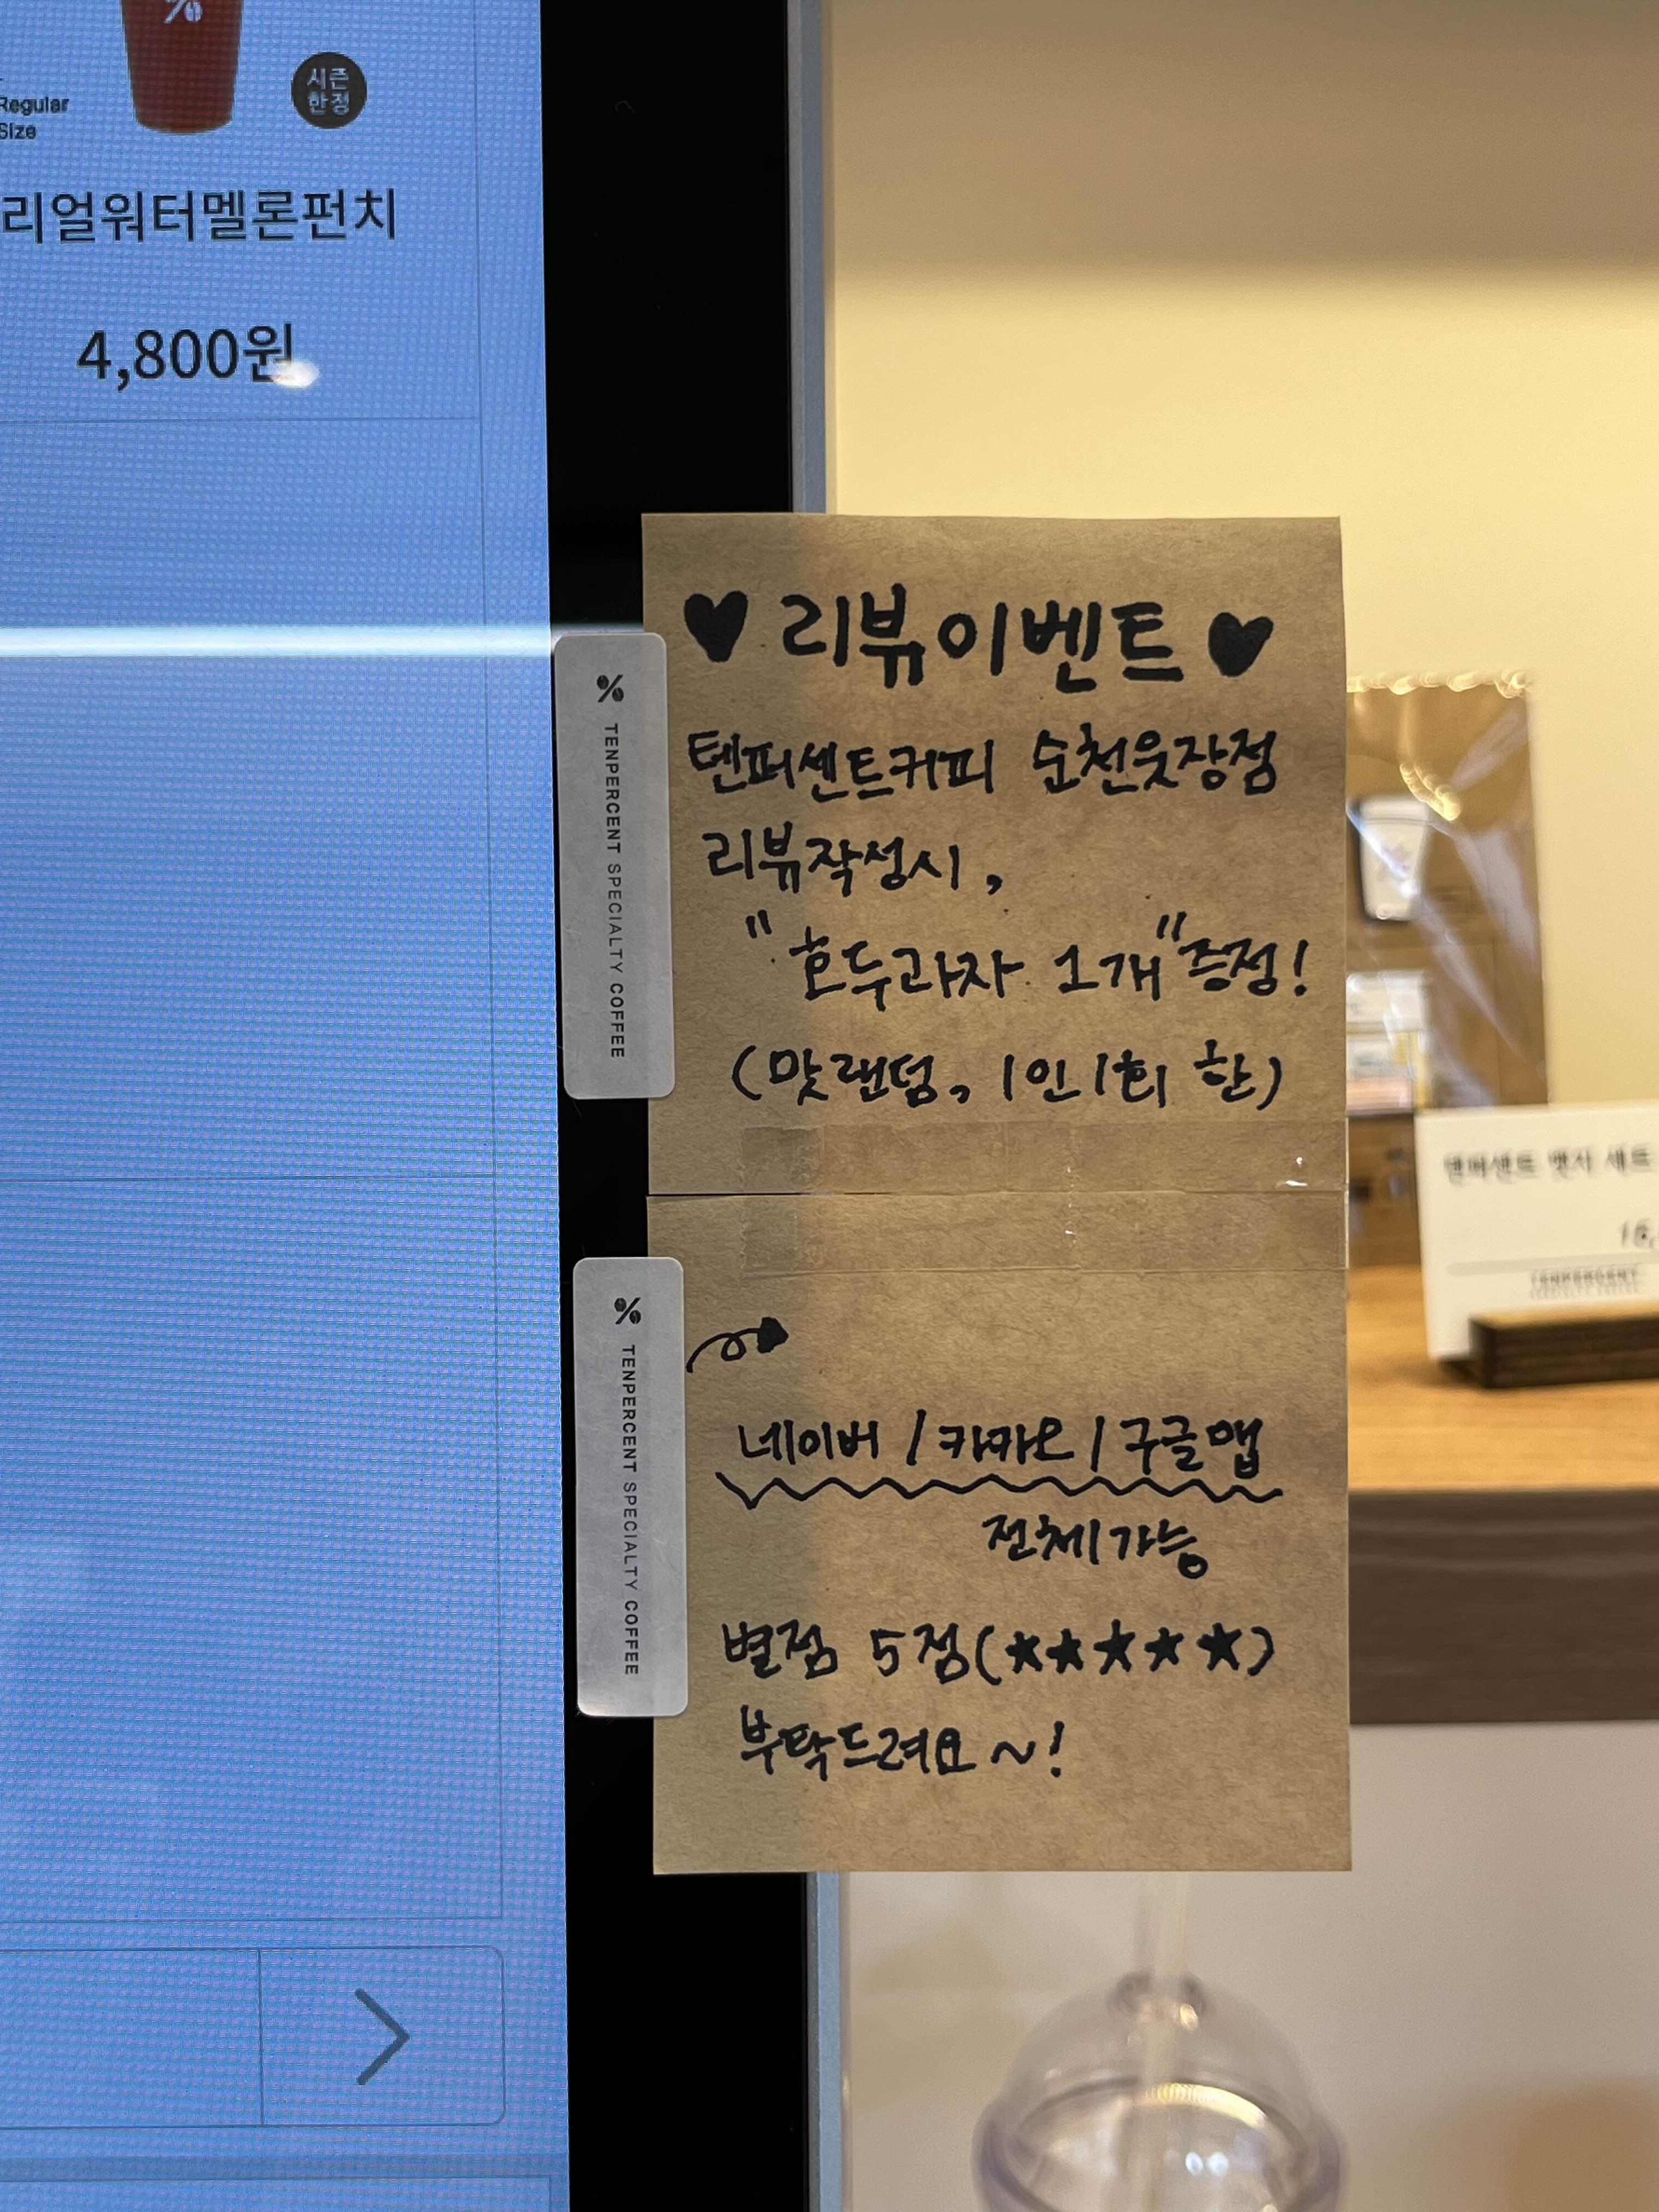 %
Regular
Size
시즌
한정
리얼워터멜론펀치
4,800원
♥ 리뷰이벤트 ♥
텐퍼센트커피 순천웃장점
리뷰작성시,
"호두과자 1개"증정!
(맛랜덤, 1인 1회 한)
% TENPERCENT SPECIALTY COFFEE
네이버 / 카카오 / 구글맵
전체가능
별점 5점(★★★★★)
부탁드려요~!
% TENPERCENT SPECIALTY COFFEE
텐퍼센트 세트
TENPERCENT